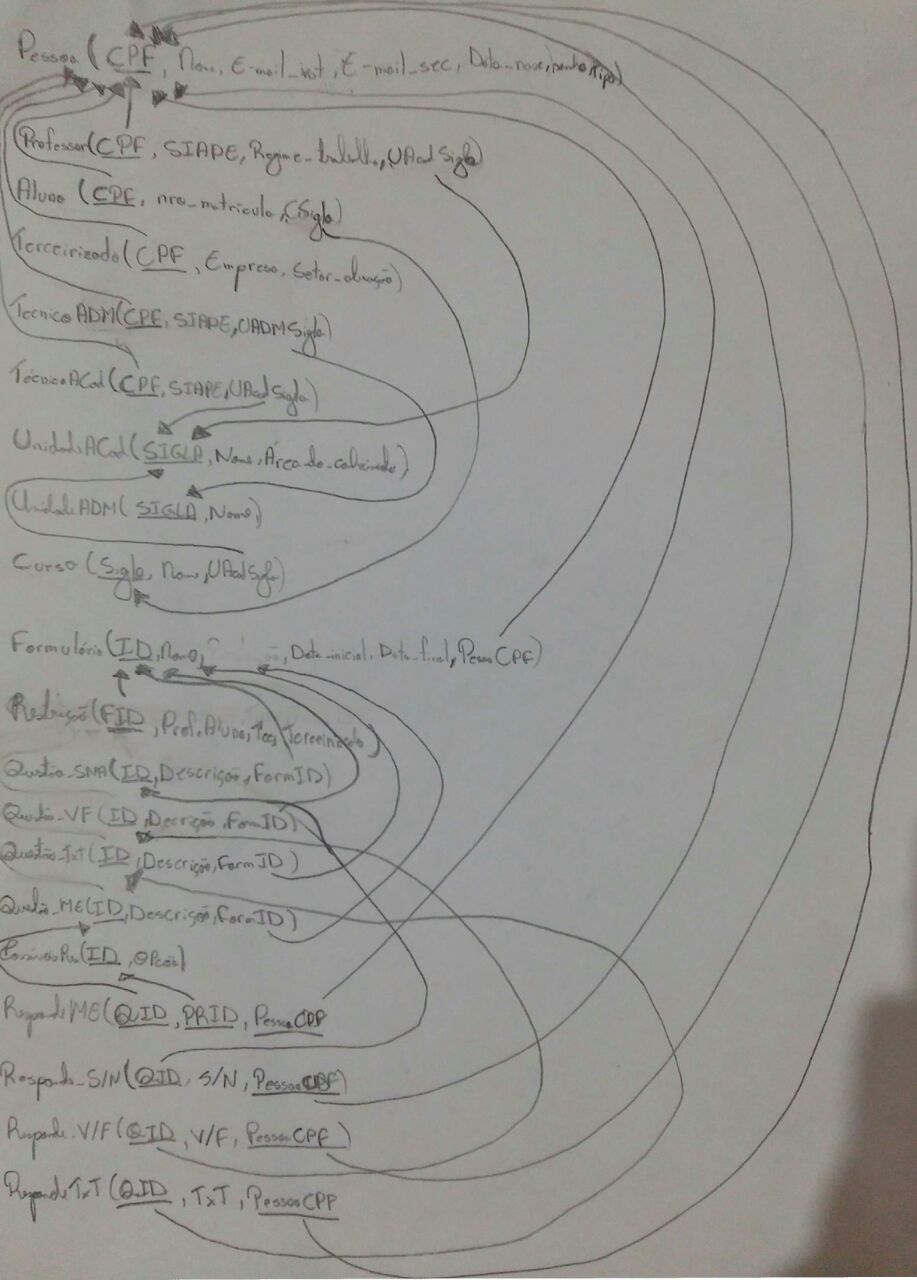 Pessoa (CPF, Nome, E-mail_inst, E-mail_sec, Data_nasc, senha, tipo)
Professor(CPF, SIAPE, Regime_trabalho, UAcadSigla)
Aluno (CPF, nro_matricula, CSigla)
Terceirizado(CPF, Empresa, Setor_atuação)
TecnicoADM(CPF, SIAPE, UADMSigla)
TécnicoACad(CPF, SIAPE, UAcadSigla)
UnidadeACad(SIGLA, Nome, Área_do_conhecimento)
UnidadeADM( SIGLA, Nome,)
Curso (Sigla, Nome, UAcadSigla)
Formulário(ID, Nome, , Data_inicial, Data_final, PessoaCPF)
Restrição(FID, Prof, Aluno, Tec, Terceirizado)
Questão_SNA(ID, Descrição, FormID)
Questão_VF(ID, Descrição, FormID)
Questão_TxT(ID, Descrição, FormID)
Questão_ME(ID, Descrição, FormID)
(ID, OPção)
RespondeME(QID, PRID, PessoaCPF
Responde_S/N(QID, S/N, PessoaCPF)
Responde_V/F(QID, V/F, PessoaCPF)
RespondeTxT(QID, TxT, PessoaCPF